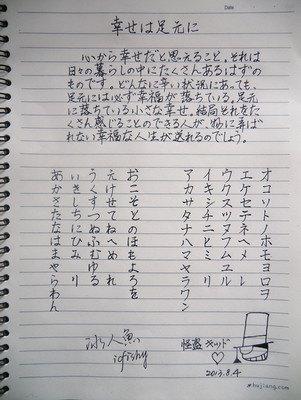 Date
幸せは足元に
心から幸せだと思えること。それは
日々の暮らしの中にたくさんあるはずの
ものです。どんなに辛い状況にあっても、
足元には必ず幸福が落ちている。足元
に落ちている小さな幸せ。結局それをた
くさん感じることのできる人が、物に喜ば
れない幸福な人生が送れるのでしょう。
あいうえお
かきくけこ
さしすせそ
たちつてと
なにぬねの
はひふへほ
まみむめも
や ゆ よ
らりるれろ
わ を
ん
アイウエオ
カキクケコ
サシスセソ
タチツテト
ナニヌネノ
ハヒフヘホ
マミムメモ
ヤ ユ ヨ
ラリルレロ
ワ ヲ
ン
冰人魚
icfishy
怪盗 キッド
♡
2013.8.4
hujiang.com